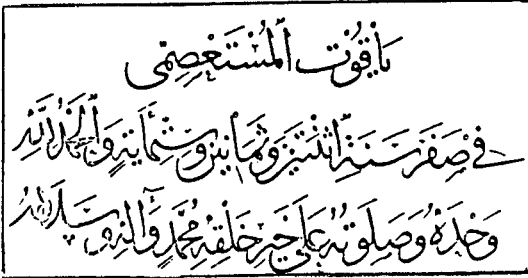 يَاقُوْت المُسْتَعْصِمِى
فى صَفَر سَنَة اثْنَتَيْن وَثَمَانِيْن وَسِتّمَأيَة وَالحَمْدُ للّٰهِ
وَحْدَهُ وَصَلَوتُهُ عَلَى خَيْر خَلْقِهِ مُحَمَّدٍ وَآلِهِ وَسَلَامُهُ